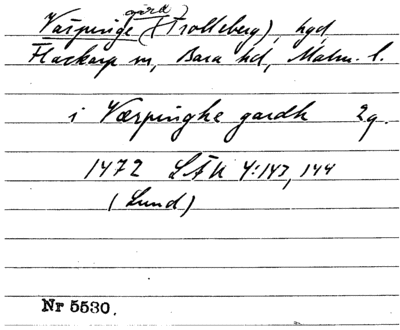 Värpinge gård (Trolleberg), hgd,
Flackarp sn, Bara hd, Malm. l.
i Værpinghe gardh 2g.
1472 LÄU 4:143, 144
(Lund)
Nr 5530.